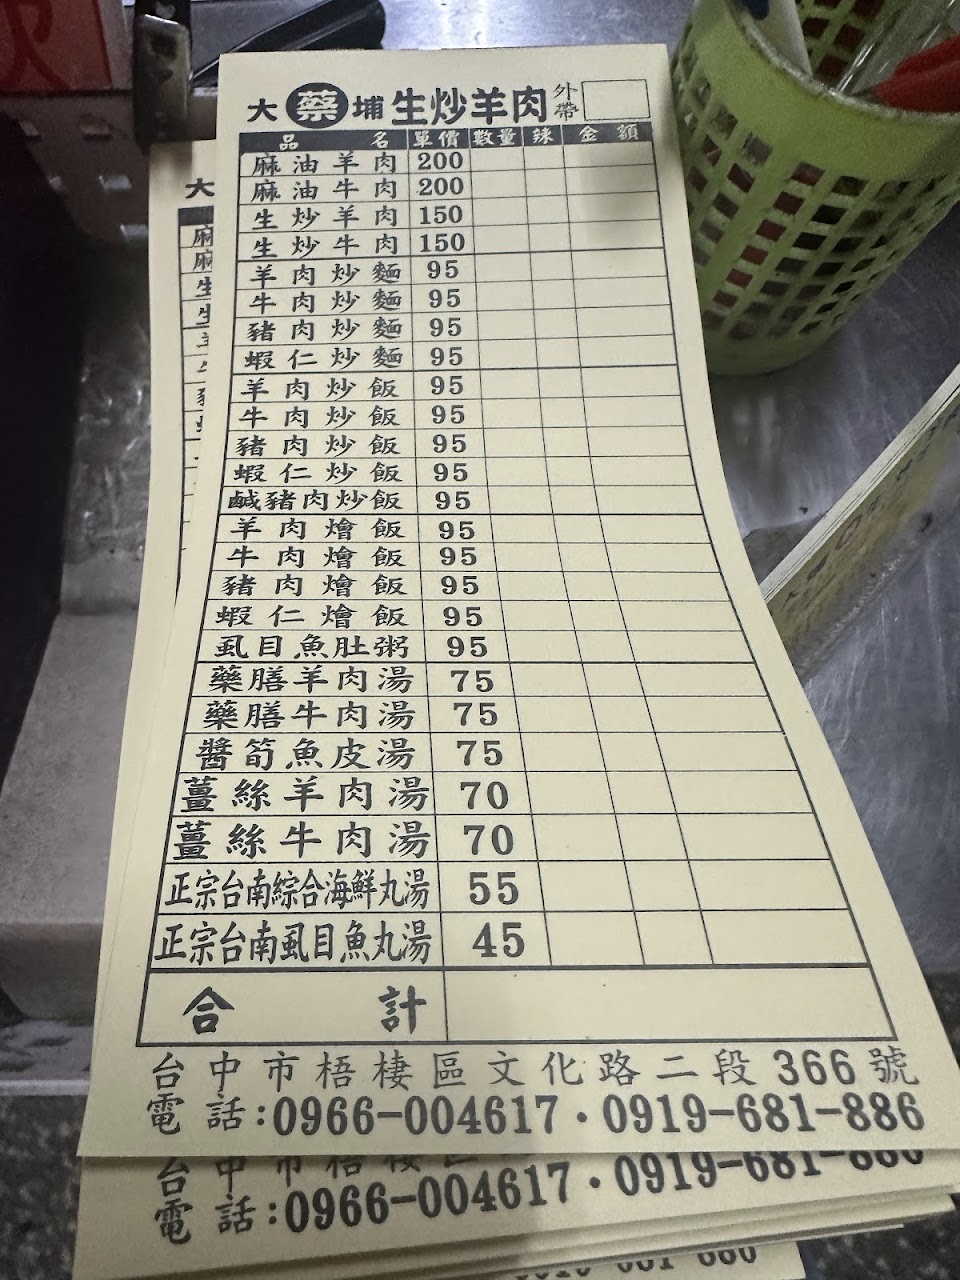 大蔡埔生炒羊肉外帶
品名 單價 數量 辣 金額
麻油羊肉 200
麻油牛肉 200
生炒羊肉 150
生炒牛肉 150
羊肉炒麵 95
牛肉炒麵 95
豬肉炒麵 95
蝦仁炒麵 95
羊肉炒飯 95
牛肉炒飯 95
豬肉炒飯 95
蝦仁炒飯 95
鹹豬肉炒飯 95
羊肉燴飯 95
牛肉燴飯 95
豬肉燴飯 95
蝦仁燴飯 95
虱目魚肚粥 95
藥膳羊肉湯 75
藥膳牛肉湯 75
醬筍魚皮湯 75
薑絲羊肉湯 70
薑絲牛肉湯 70
正宗台南綜合海鮮丸湯 55
正宗台南虱目魚丸湯 45
合計
台中市梧棲區文化路二段366號
電話:0966-004617·0919-681-886
台中市梧棲
電話:0966-004617·0919-681-886